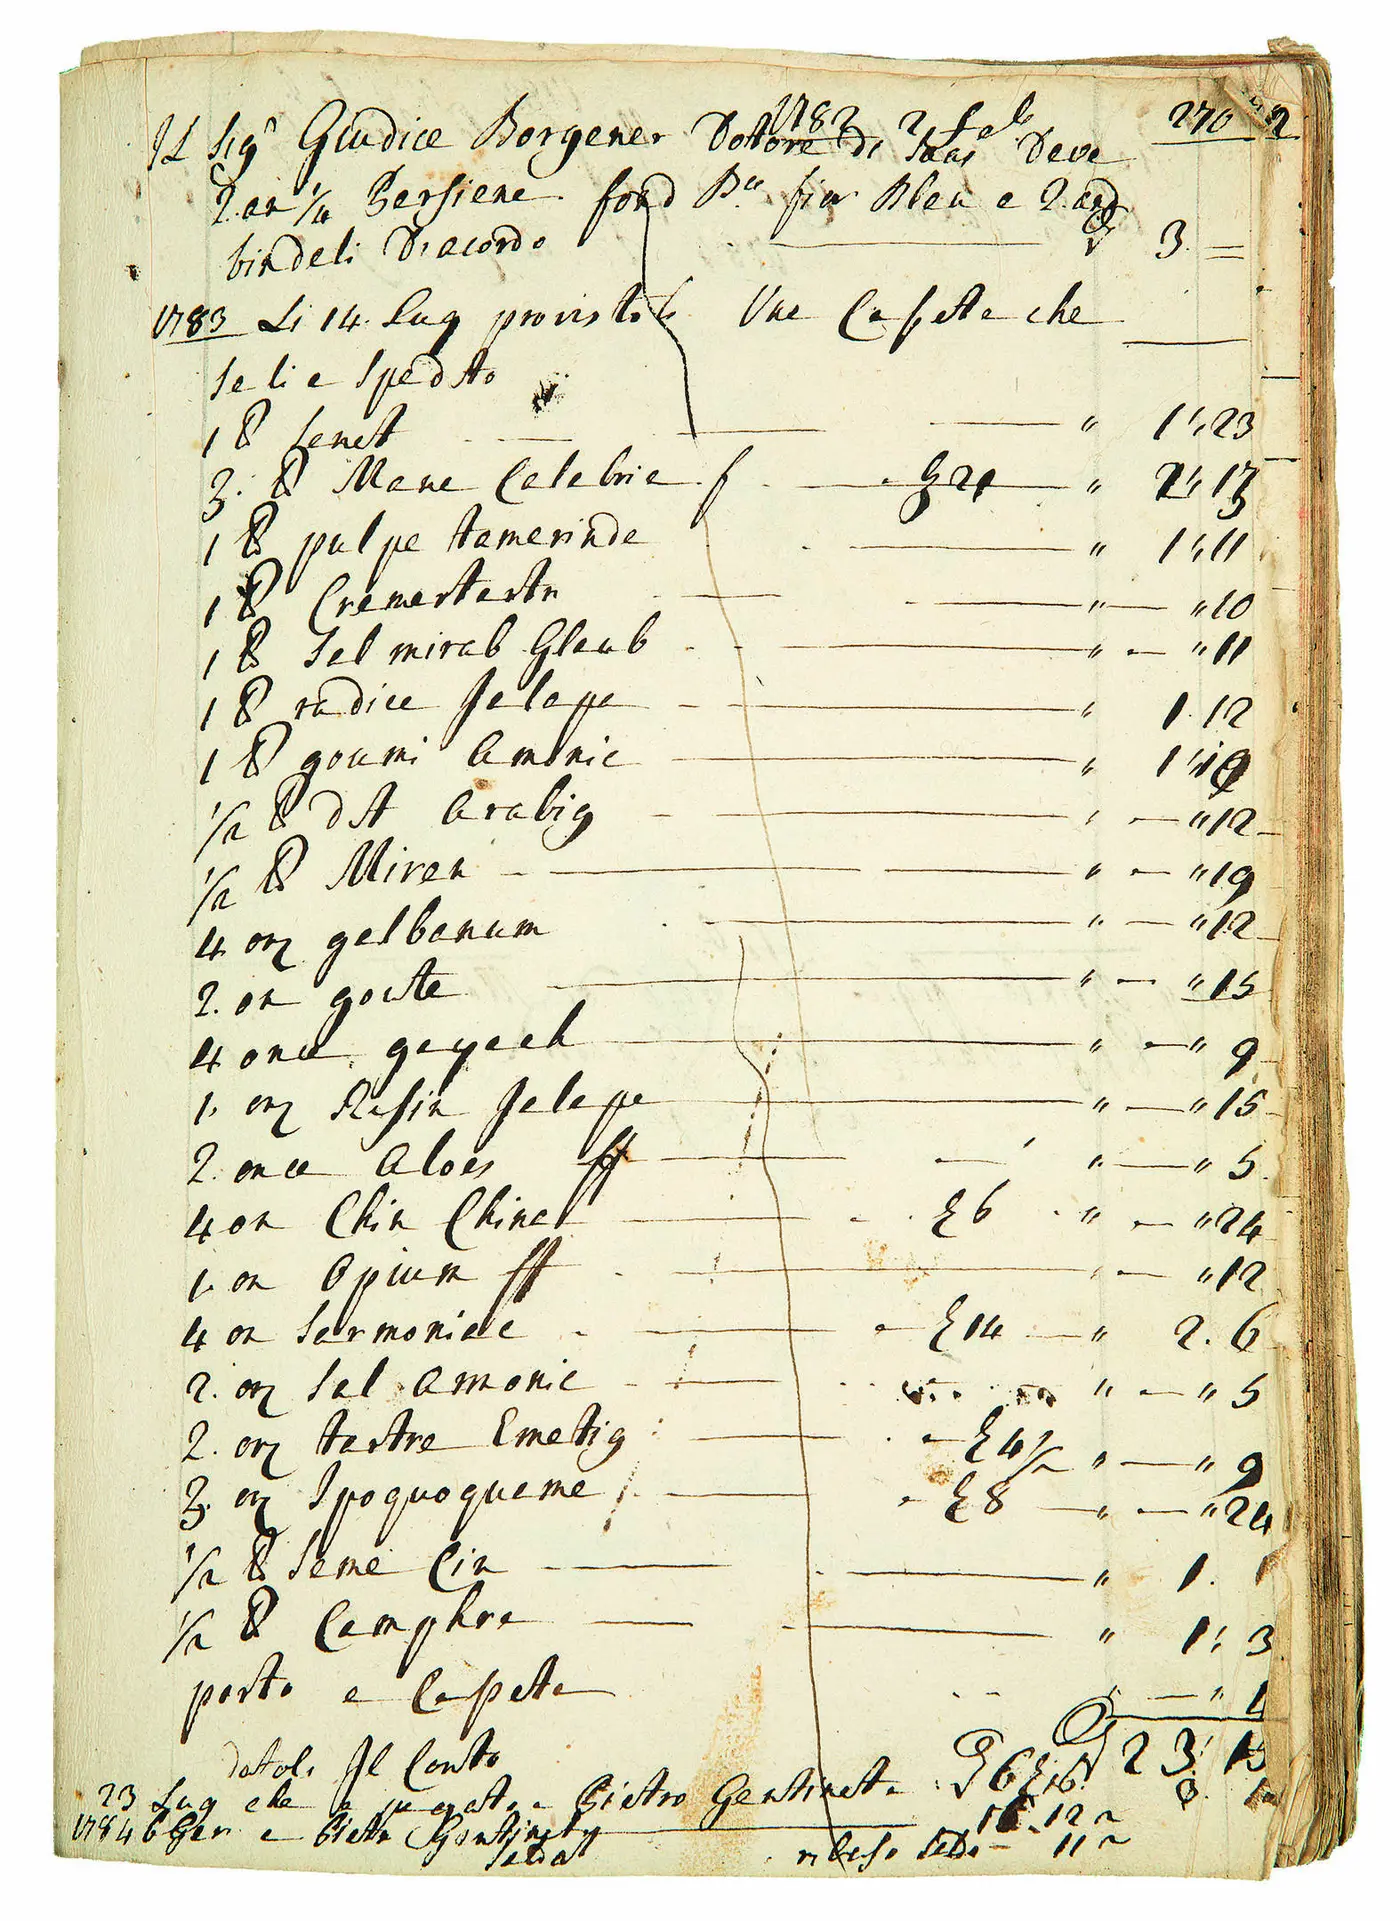 1782 2 Feb 270
Il Sigr Giudice Borgener Dottore di Saas Deve
2. an 1/4 Persiene fond Ba fiur Bleu e 2. and
bindeli D'acordo 3. =
1783 Li 14. Lug provisto Une Casseta che
se li e spedito
1 ℔ senet " 1 " 23
3. ℔ Mane Calabrie f 21 " 2 " 13
1 ℔ pulpe tamerinde " 1 " 11
1 ℔ Cremertartr " — " 10
1 ℔ Sal mirab Glaub " — " 11
1 ℔ radice Jalape " 1. 12
1 ℔ goumi Amonic " 1 "
1/2 ℔ dit Arabig " — " 12
1/2 ℔ Miren " — " 19
4 onz galbanum " — " 12
2. on goute " — " 15
4 once gayach " — " 9
1. onz Rasin Jalape " — " 15
2. once Aloes ff " — " 5
4 on Chin China 6 " — " 24
1. on Opium ff " — " 12
4 on Sarmoniac 14 " 2. 6
2. onz Sal Amonic " — " 5
2. onz tartre Emetig 4 1/2 " — " 9
3. onz Ipoquoquame 8 " — " 24
1/2 ℔ Seme Cin " 1. 1
1/2 ℔ Camphra " 1 " 3
porto e Casseta " — "
datoli Il Conto 23
23 Lug che a pagato a Pietro Gentineta
1784 6 Gen a Pietr Gentinety 12
11